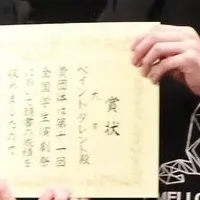 賞状
大賞
ペイントタレント殿
貴団体は第十一回
全国学生演劇祭
において頭書の成績を
収めましたので